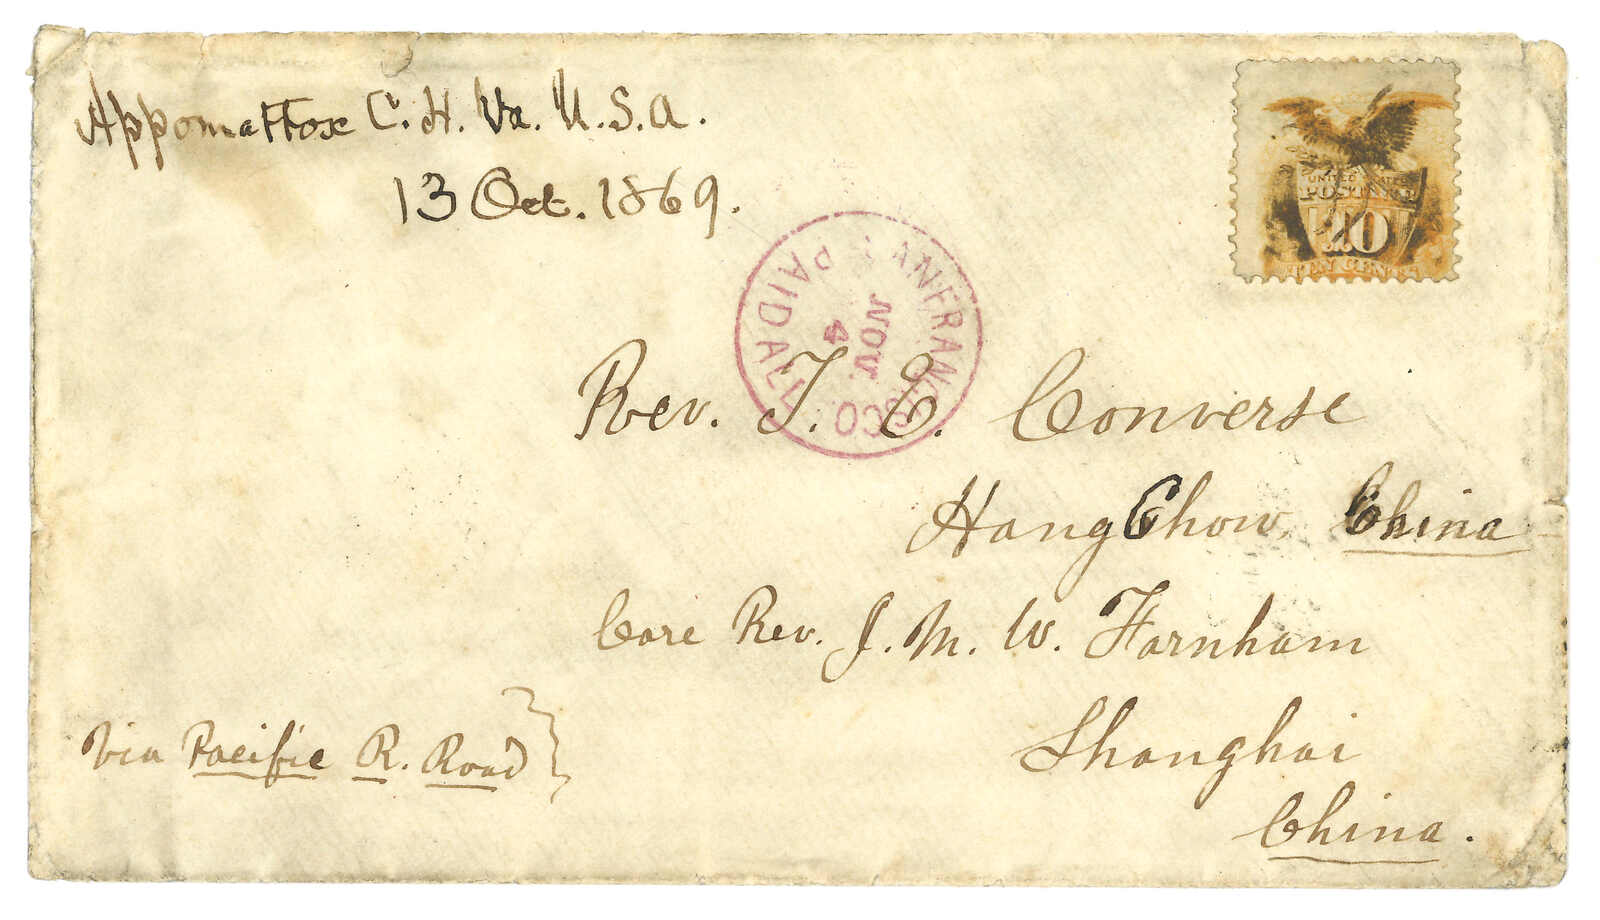 Appomattox C. H. Va. U. S. A.
13 Oct. 1869.
UNITED STATES
POSTAGE
10
TEN CENTS
SAN FRANCISCO
NOV.
4
PAID ALL
Rev. T. E. Converse
HangChow, China
Care Rev. J. M. W. Farnham
Shanghai
China.
Via Pacific R. Road